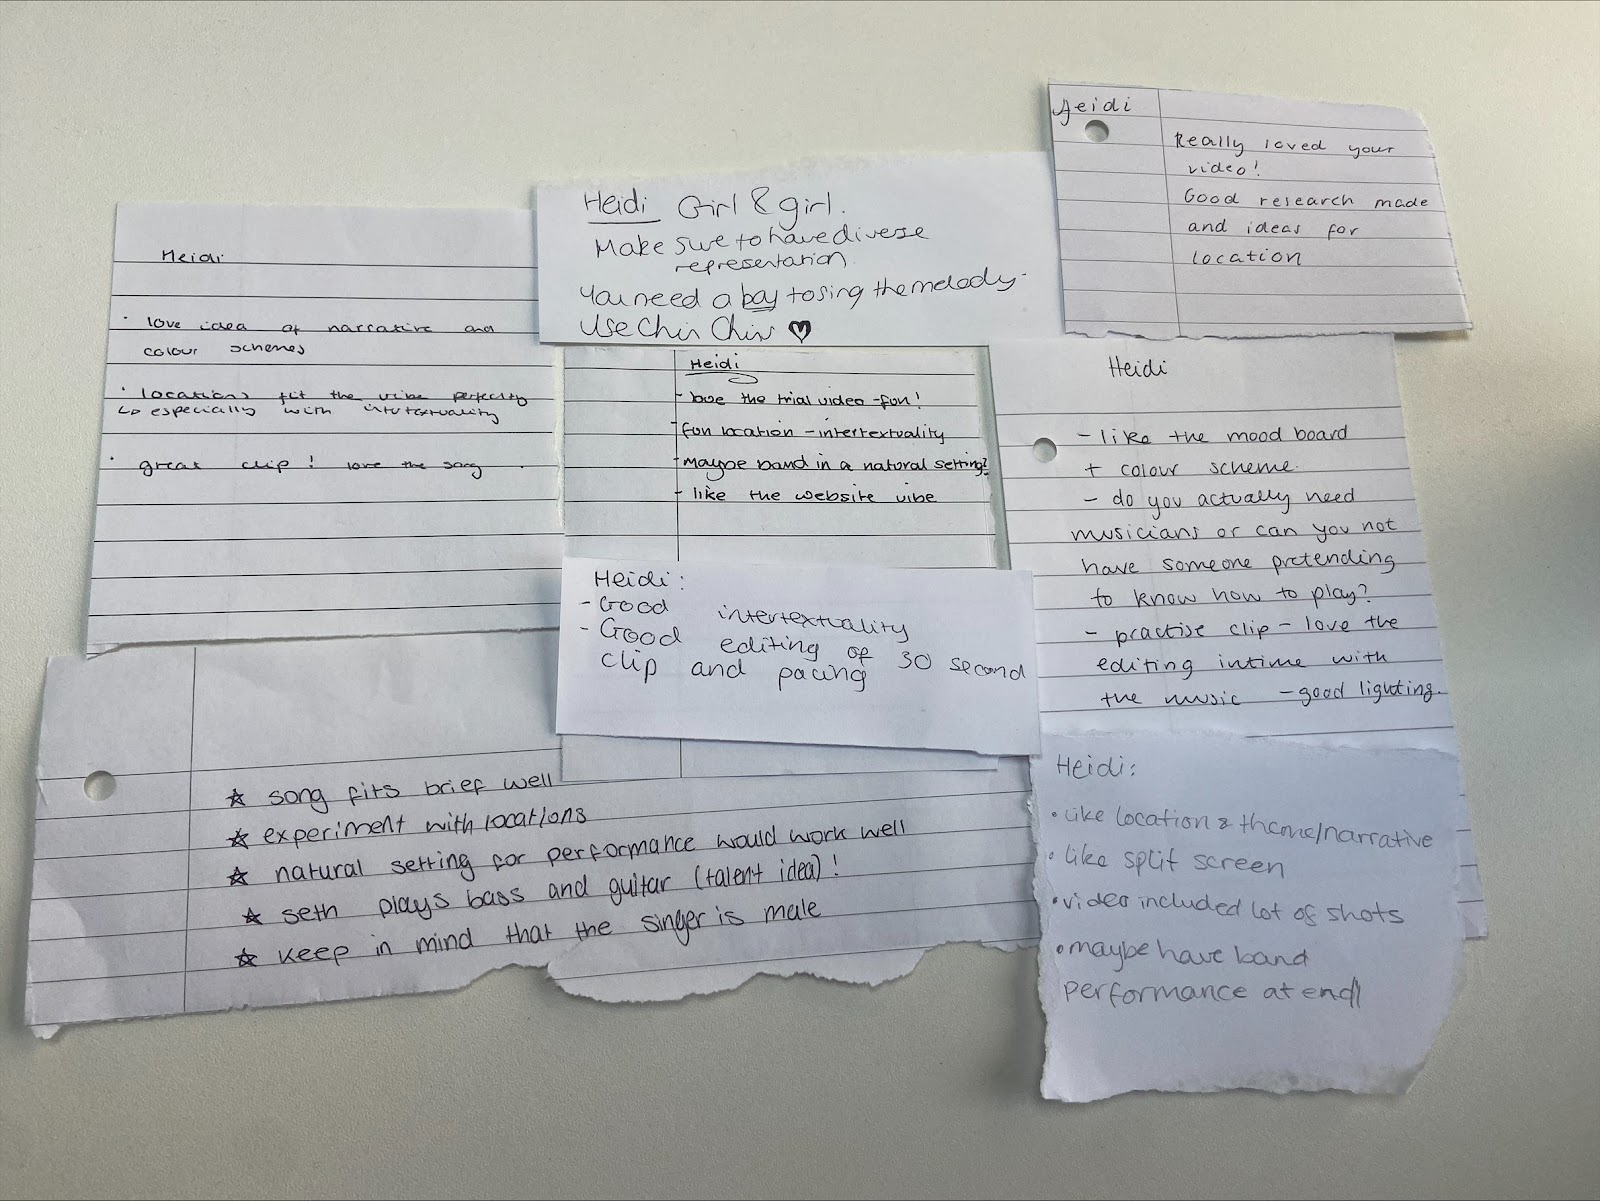 Heidi
· love idea of narrative and
colour schemes
· locations fit the vibe perfectly
↳ especially with intertextuality
· great clip! love the song
Heidi Girl & girl.
Make sure to have diverse
representation
You need a boy to sing the melody
Use Chin Chin ♥
Heidi
Really loved your
video!
Good research made
and ideas for
location
Heidi
- love the trial video - fun!
- fun location - intertextuality
- maybe band in a natural setting?
- like the website vibe
Heidi
- like the mood board
+ colour scheme.
- do you actually need
musicians or can you not
have someone pretending
to know how to play?
- practise clip - love the
editing intime with
the music - good lighting.
Heidi:
- Good intertextuality
- Good editing of 30 second
clip and pacing
☆ song fits brief well
☆ experiment with locations
☆ natural setting for performance would work well
☆ seth plays bass and guitar (talent idea)!
☆ keep in mind that the singer is male
Heidi:
· like location & theme/narrative
· like split screen
· video included lot of shots
· maybe have band
performance at end